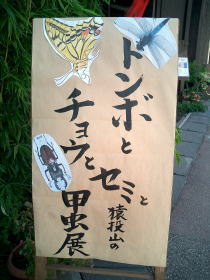 トンボと
チョウと
セミと
猿投山の
甲虫展